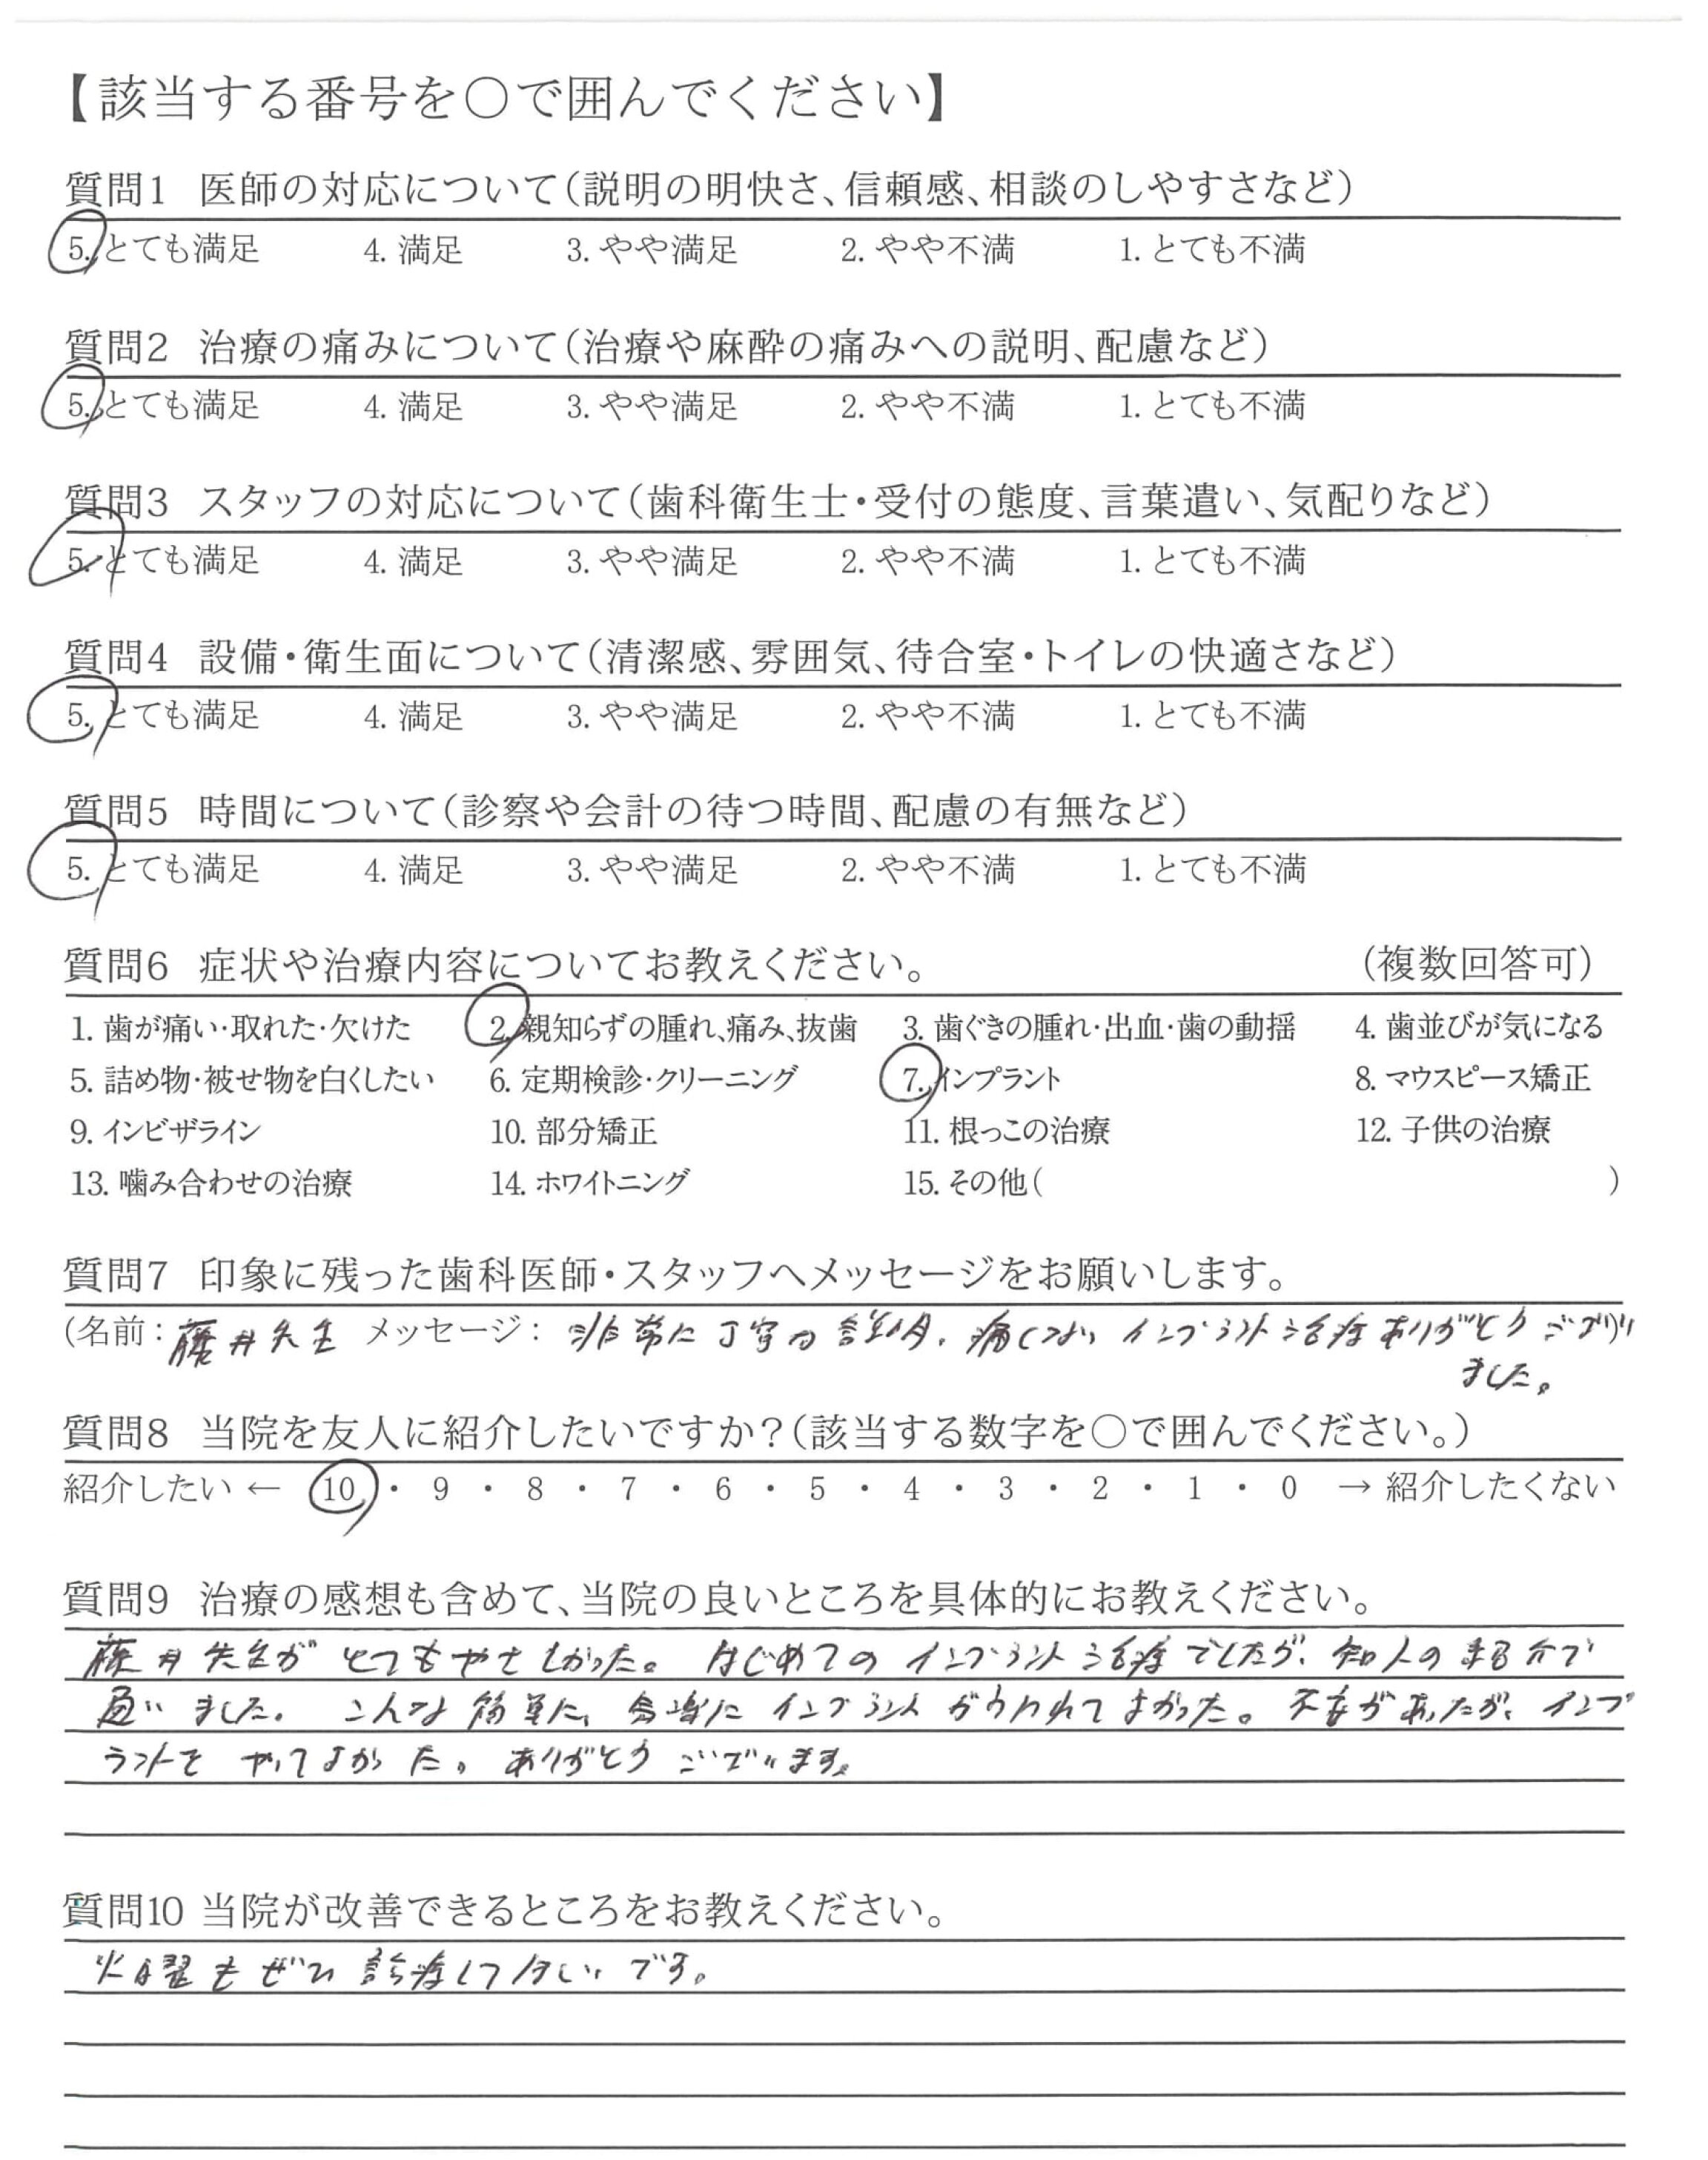 【該当する番号を〇で囲んでください】
質問1 医師の対応について(説明の明快さ、信頼感、相談のしやすさなど)
5. とても満足 4. 満足 3. やや満足 2. やや不満 1. とても不満
質問2 治療の痛みについて(治療や麻酔の痛みへの説明、配慮など)
5. とても満足 4. 満足 3. やや満足 2. やや不満 1. とても不満
質問3 スタッフの対応について(歯科衛生士・受付の態度、言葉遣い、気配りなど)
5. とても満足 4. 満足 3. やや満足 2. やや不満 1. とても不満
質問4 設備・衛生面について(清潔感、雰囲気、待合室・トイレの快適さなど)
5. とても満足 4. 満足 3. やや満足 2. やや不満 1. とても不満
質問5 時間について(診察や会計の待つ時間、配慮の有無など)
5. とても満足 4. 満足 3. やや満足 2. やや不満 1. とても不満
質問6 症状や治療内容についてお教えください。 (複数回答可)
1. 歯が痛い・取れた・欠けた 2. 親知らずの腫れ、痛み、抜歯 3. 歯ぐきの腫れ・出血・歯の動揺 4. 歯並びが気になる
5. 詰め物・被せ物を白くしたい 6. 定期検診・クリーニング 7. インプラント 8. マウスピース矯正
9. インビザライン 10. 部分矯正 11. 根っこの治療 12. 子供の治療
13. 噛み合わせの治療 14. ホワイトニング 15. その他( )
質問7 印象に残った歯科医師・スタッフへメッセージをお願いします。
(名前: 藤井先生 メッセージ: 非常に丁寧な説明、痛くない インプラント治療ありがとうござい)
ました。
質問8 当院を友人に紹介したいですか?(該当する数字を〇で囲んでください。)
紹介したい ← 10 ・ 9 ・ 8 ・ 7 ・ 6 ・ 5 ・ 4 ・ 3 ・ 2 ・ 1 ・ 0 → 紹介したくない
質問9 治療の感想も含めて、当院の良いところを具体的にお教えください。
藤井先生が とてもやさしかった。 はじめての インプラント治療でしたが、知人の紹介で
通いました。 こんな簡単に、 インプラントがうけれてよかった。 不安があったが、インプ
ラントを やってよかった。 ありがとう ございます。
質問10 当院が改善できるところをお教えください。
火曜もぜひ 診療して欲しいです。